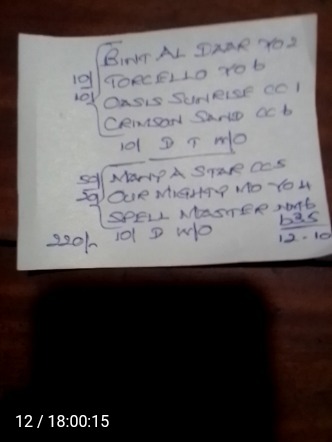 BINT AL DAAR YO 2
10/ TORCELLO YO 6
10/ OASIS SUNRISE CC 1
CRIMSON SAND CC 6
10/ D T W/O
50/ MANY A STAR CC 5
50/ OUR MIGHTY MO YO 4
SPELL MASTER NMB
635
220/- 10/ D W/O
12-10
12 / 18:00:15